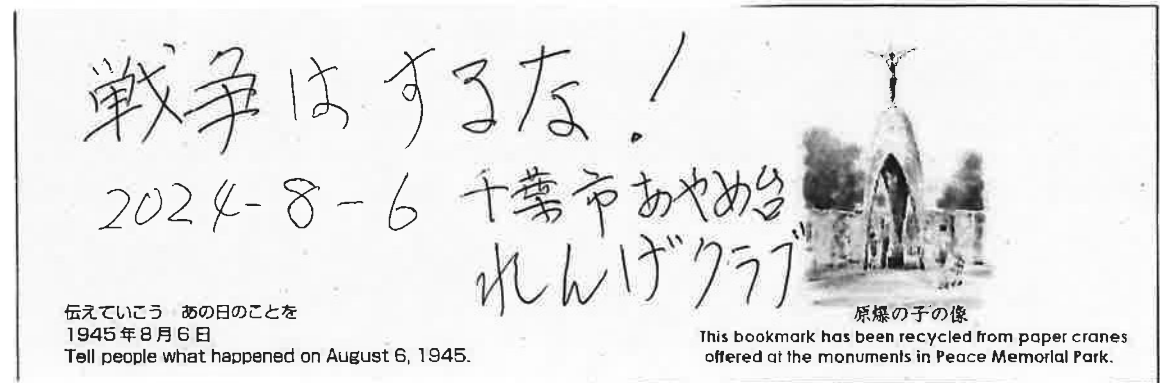 戦争はするな!
2024-8-6 千葉市あやめ台
れんげクラブ
伝えていこう あの日のことを
1945年8月6日
Tell people what happened on August 6, 1945.
原爆の子の像
This bookmark has been recycled from paper cranes
offered at the monuments in Peace Memorial Park.